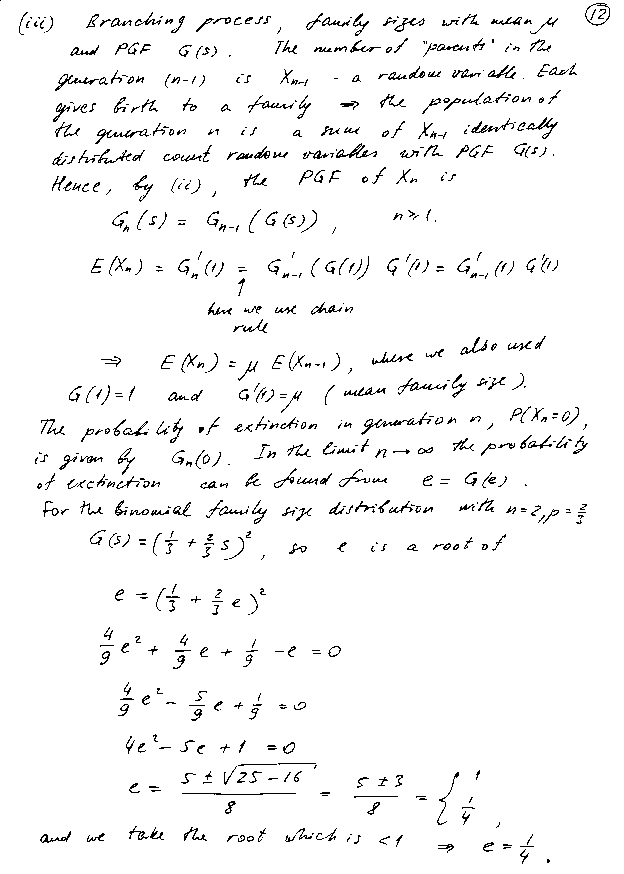 (iii) Branching process, family sizes with mean μ (12)
and PGF G(s). The number of "parents" in the
generation (n-1) is Xₙ₋₁ - a random variable. Each
gives birth to a family ⇒ the population of
the generation n is a sum of Xₙ₋₁ identically
distributed count random variables with PGF G(s).
Hence, by (ii), the PGF of Xₙ is
Gₙ(s) = Gₙ₋₁(G(s)), n ≥ 1.
E(Xₙ) = Gₙ'(1) = Gₙ₋₁'(G(1)) G'(1) = Gₙ₋₁'(1) G'(1)
↑
here we use chain
rule
⇒ E(Xₙ) = μ E(Xₙ₋₁), where we also used
G(1)=1 and G'(1)=μ (mean family size).
The probability of extinction in generation n, P(Xₙ=0),
is given by Gₙ(0). In the limit n→∞ the probability
of extinction can be found from e = G(e).
For the binomial family size distribution with n=2, p=2/3
G(s) = (1/3 + 2/3 s)², so e is a root of
e = (1/3 + 2/3 e)²
4/9 e² + 4/9 e + 1/9 - e = 0
4/9 e² - 5/9 e + 1/9 = 0
4e² - 5e + 1 = 0
e = (5 ± √(25-16))/8 = (5 ± 3)/8 = { 1, 1/4,
and we take the root which is <1 ⇒ e = 1/4.